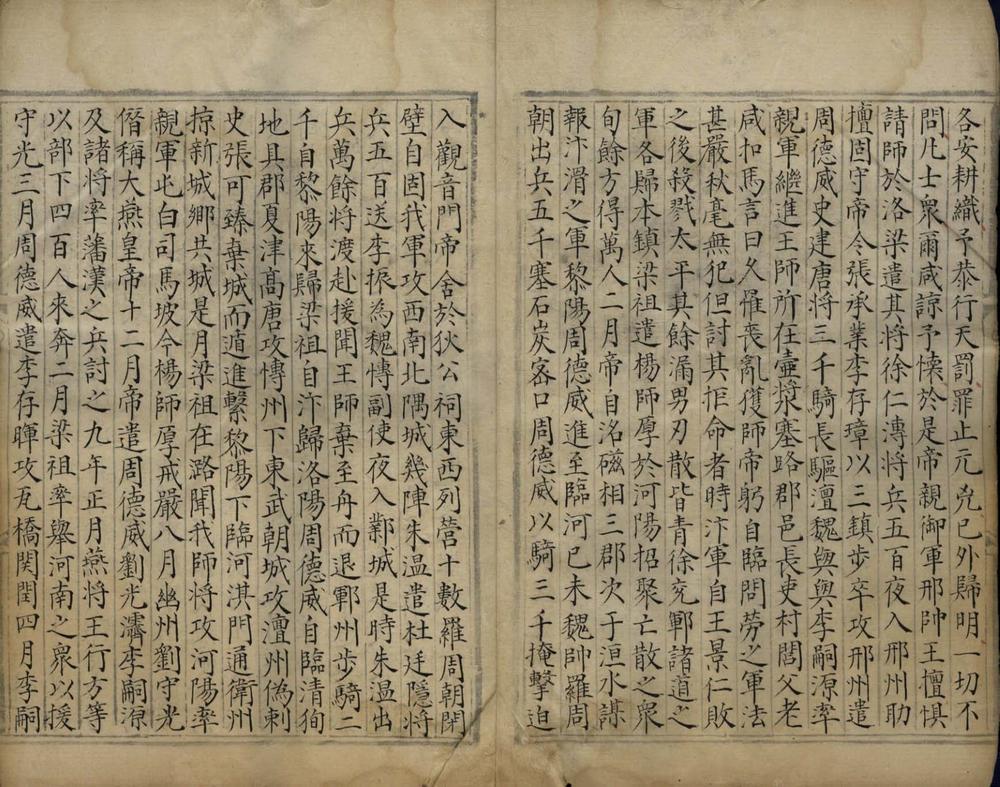 各安耕織予恭行天罰罪止元兇已外歸明一切不
問凡士衆爾咸諒予懷於是帝親御軍邢帥王檀懼
請師於洛梁遣其將徐仁溥將兵五百夜入邢州助
檀固守帝令張承業李存璋以三鎮步卒攻邢州遣
周德威史建唐將三千騎長驅澶魏與與李嗣源率
親軍繼進王師所在壷漿塞路郡邑長吏村閭父老
咸扣馬言曰久罹喪亂獲師帝躬自臨問勞之軍法
甚嚴秋毫無犯但討其拒命者時汴軍自王景仁敗
之後殺戮太平其餘漏男刃散皆青徐兖鄆諸道之
軍各歸本鎮梁祖遣楊師厚於河陽招聚亡散之衆
旬餘方得萬人二月帝自洺磁相三郡次于洹水謀
報汴滑之軍黎陽周德威進至臨河已未魏帥羅周
朝出兵五千塞石炭窰口周德威以騎三千掩擊迫
入觀音門帝舍於狄公祠東西列營十數羅周朝閉
壁自固我軍攻西南北隅城幾陣朱温遣杜廷隱將
兵五百送李振為魏愽副使夜入鄴城是時朱温出
兵萬餘將渡赴援聞王師棄至舟而退鄆州步騎二
千自黎陽來歸梁祖自汴歸洛陽周德威自臨清狥
地具郡夏津髙唐攻愽州下東武朝城攻澶州偽刺
史張可臻棄城而遁進繫黎陽下臨河淇門通衛州
掠新城鄉共城是月梁祖在潞聞我師將攻河陽率
親軍屯白司馬坡令楊師厚戒嚴八月幽州劉守光
僭稱大燕皇帝十二月帝遣周德威劉光濬李嗣源
及諸將率蕃漢之兵討之九年正月燕將王行方等
以部下四百人來奔二月梁祖率舉河南之衆以援
守光三月周德威遣李存暉攻瓦橋関閏四月李嗣